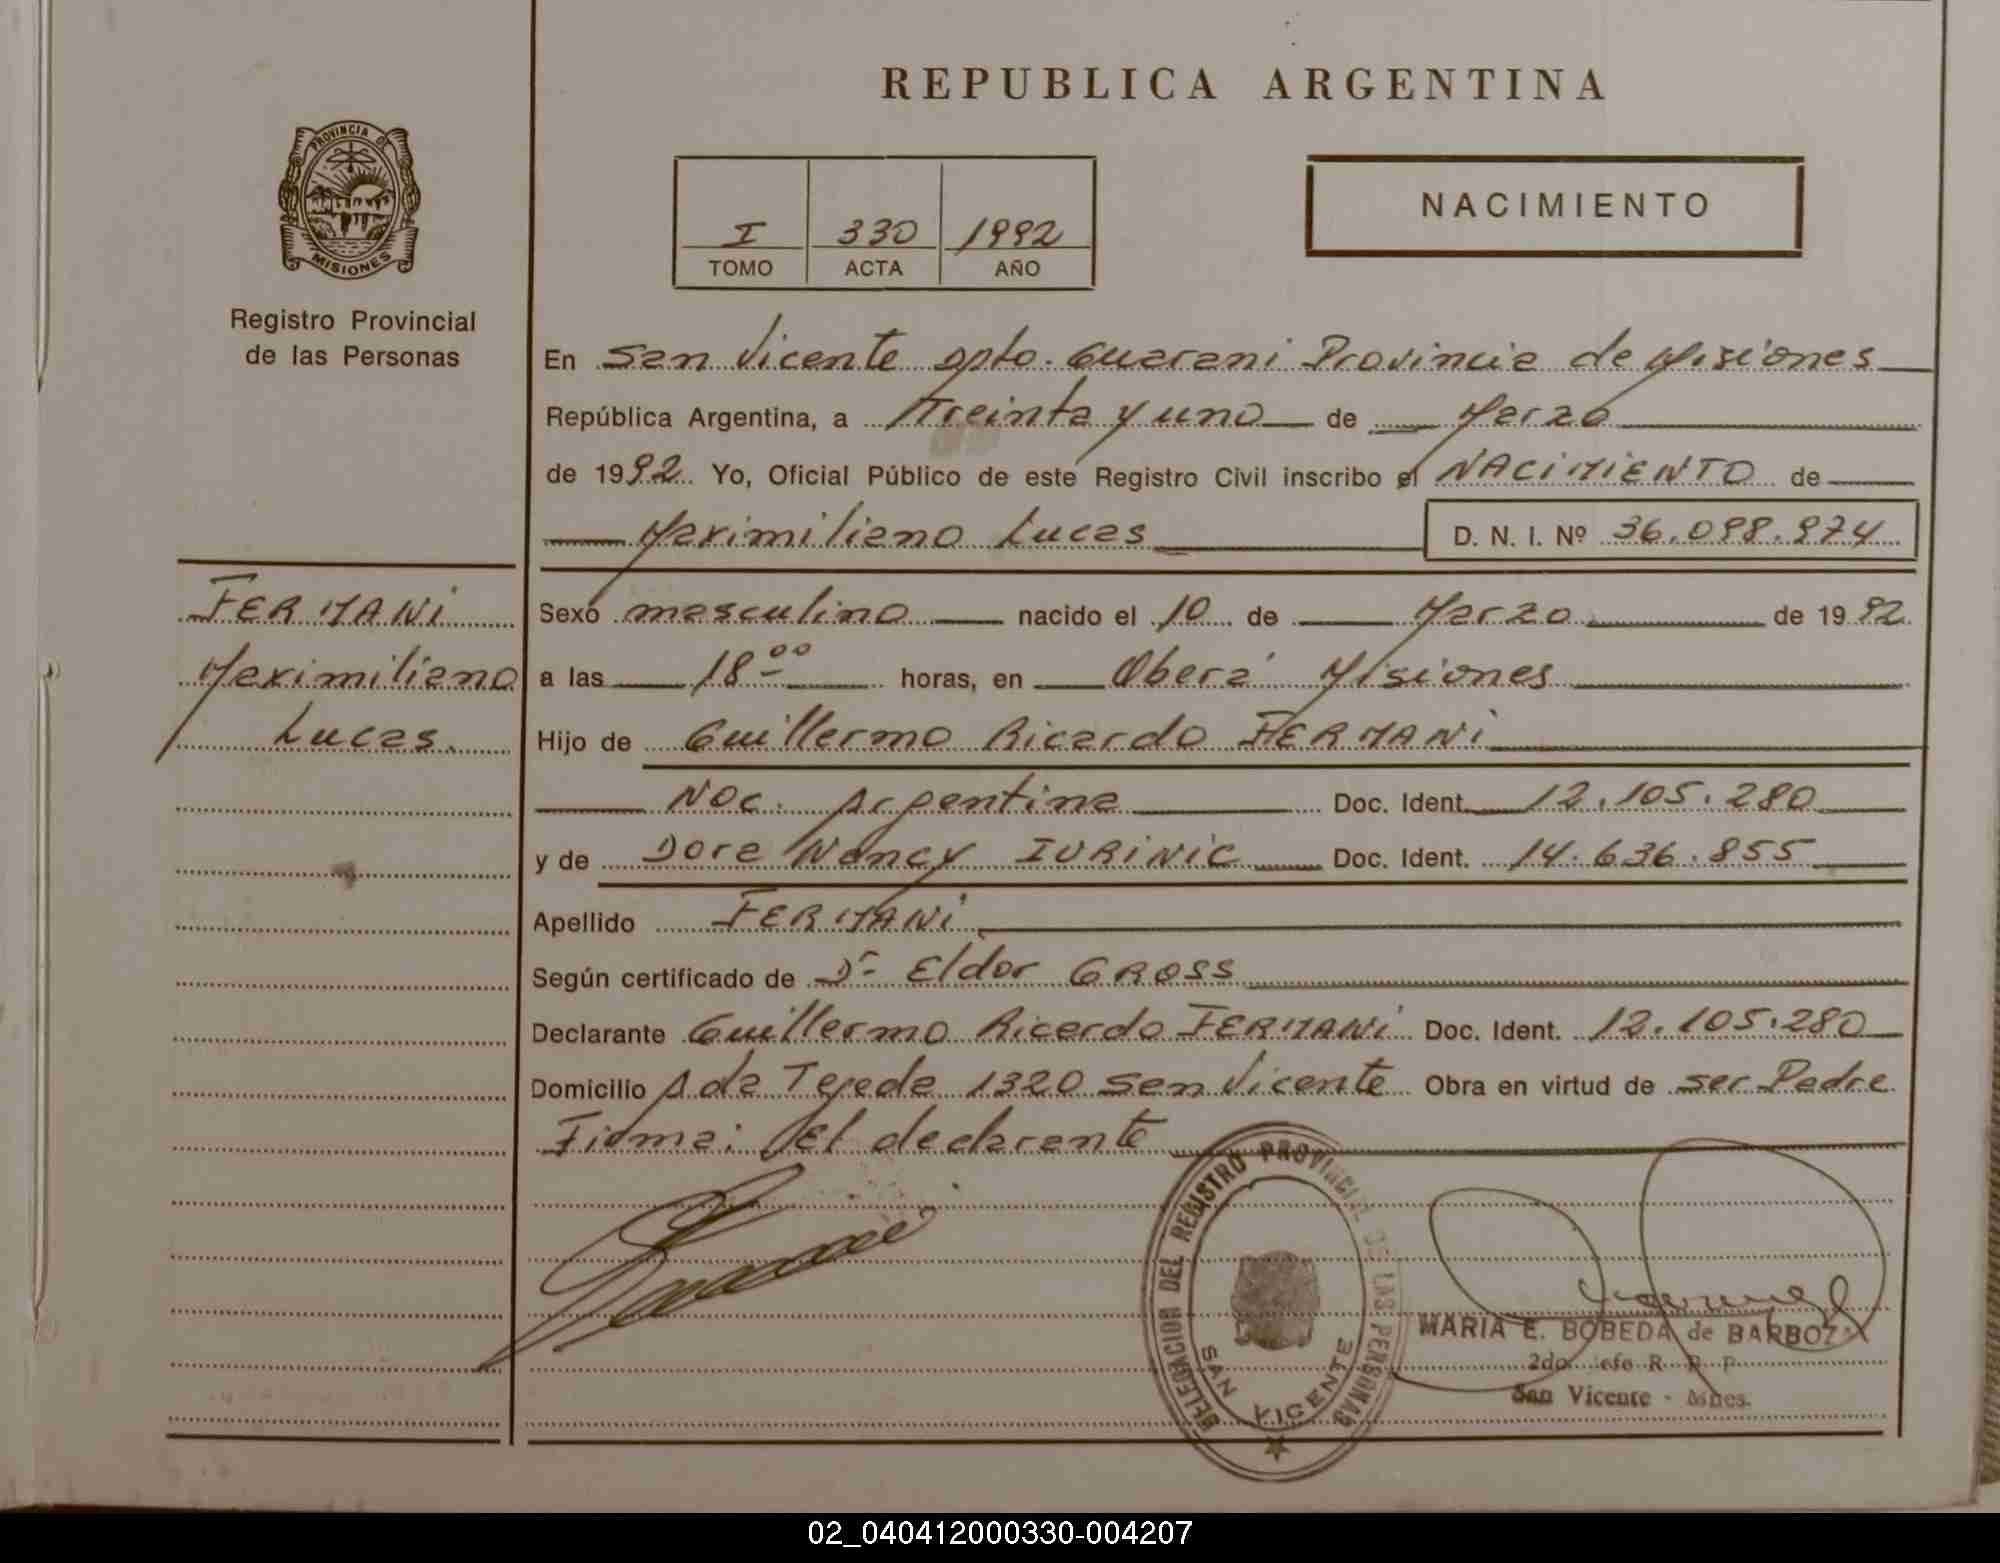 REPUBLICA ARGENTINA
PROVINCIA DE
MISIONES
Registro Provincial
de las Personas
I 330 1992
TOMO ACTA AÑO
NACIMIENTO
En San Vicente Dpto. Guarani Provincia de Misiones
República Argentina, a Treinta y uno de Marzo
de 1992 Yo, Oficial Público de este Registro Civil inscribo el NACIMIENTO de
Maximiliano Lucas D. N. I. Nº 36.098.974
FERMANI
Maximiliano
Lucas
Sexo masculino nacido el 10 de Marzo de 1992
a las 18 00 horas, en Oberá Misiones
Hijo de Guillermo Ricardo FERMANI
Nac. Argentina Doc. Ident. 12.105.280
y de Dora Nancy IURINIC Doc. Ident. 14.636.855
Apellido FERMANI
Según certificado de Dr Eldor GROSS
Declarante Guillermo Ricardo FERMANI Doc. Ident. 12.105.280
Domicilio A de Tejeda 1320 San Vicente Obra en virtud de ser Padre
Firma: El declarante
DELEGACION DEL REGISTRO PROVINCIAL DE LAS PERSONAS
SAN VICENTE
MARIA E. BOBEDA de BARBOZA
2do. Jefe R. P. P.
San Vicente - Mnes.
02_040412000330-004207